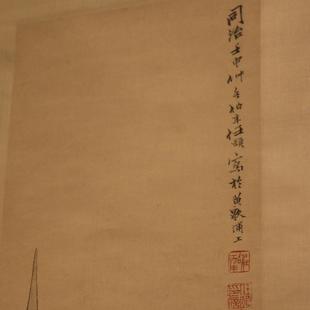 同治壬申仲冬伯年任頤寫於黃歇浦上